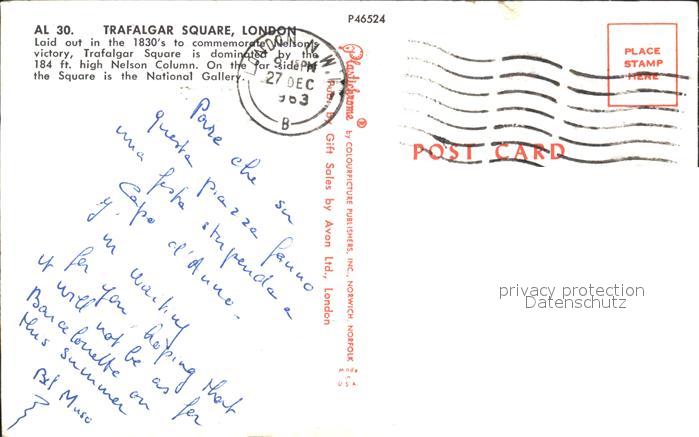 P46524
AL 30. TRAFALGAR SQUARE, LONDON
Laid out in the 1830's to commemorate Nelson's
victory, Trafalgar Square is dominated by the
184 ft. high Nelson Column. On the far side of
the Square is the National Gallery.
LONDON N.W.
9 15PM
27 DEC
1963
B
Plastichrome ®
by COLOURPICTURE PUBLISHERS, INC., NORWICH, NORFOLK
Made
in
U.S.A.
Publ. by Gift Sales by Avon Ltd., London
PLACE
STAMP
HERE
POST CARD
Pare che su
questa piazza fanno
una festa stupenda a
Capo d'Anno.
in waiting
for you, hoping that
it will not be as
Barcelonette on for
this summer
Bel Muso
privacy protection
Datenschutz